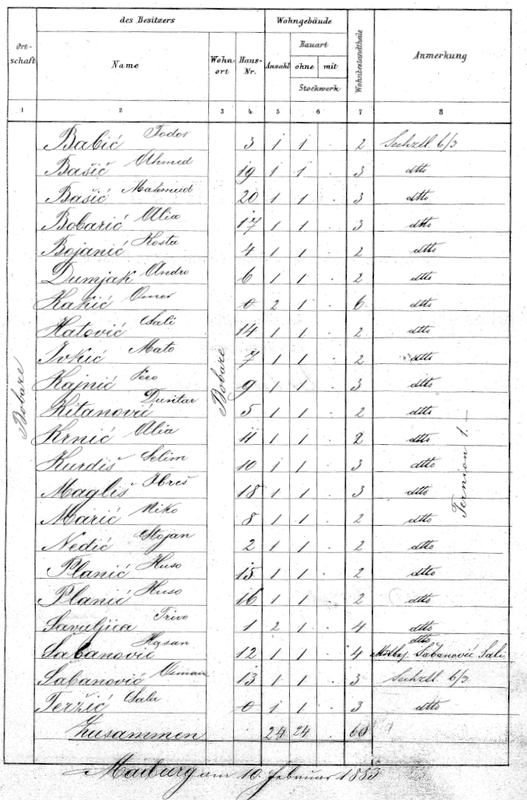 Ortschaft | des Besitzers | Wohngebäude | Wohnbestandtheile | Anmerkung
Name | Wohnort | Haus-Nr. | Anzahl | Bauart
ohne | mit
Stockwerk
1 2 3 4 5 6 7 8
Bobare
Bobare
Babić Todor 3 1 1 . 2 6/3
Bašić Ahmed 19 1 1 . 3 dtto
Bašić Mahmud 20 1 1 . 3 dtto
Bobarić Alia 17 1 1 . 3 dtto
Bojanić Kosta 4 1 1 . 2 dtto
Dumjak Andro 6 1 1 . 2 dtto
Omer 0 2 1 . 6 dtto
Hatović Sali 14 1 1 . 2 dtto
Ivkić Mato 7 1 1 . 2 dtto
Kajnić Pero 9 1 1 . 3 dtto
Kitanović 5 1 1 . 2 dtto
Krnić Alia 11 1 1 . 2 dtto
Kurdiš Selim 10 1 1 . 3 dtto
Magliš Ibriš 18 1 1 . 3 dtto
Marić Niko 8 1 1 . 2 dtto
Nedić Stojan 2 1 1 . 2 dtto
Planić Huso 15 1 1 . 2 dtto
Planić Huso 16 1 1 . 2 dtto
Savuljica Trivo 1 2 1 . 4 dtto
dtto
Šabanović Hasan 12 1 1 . 4 Šabanović Sali
Šabanović Osman 13 1 1 . 3 6/3
Teržić Sale 0 1 1 . 3 dtto
Zusammen . 24 24 . 60
am 10. Februar 1885